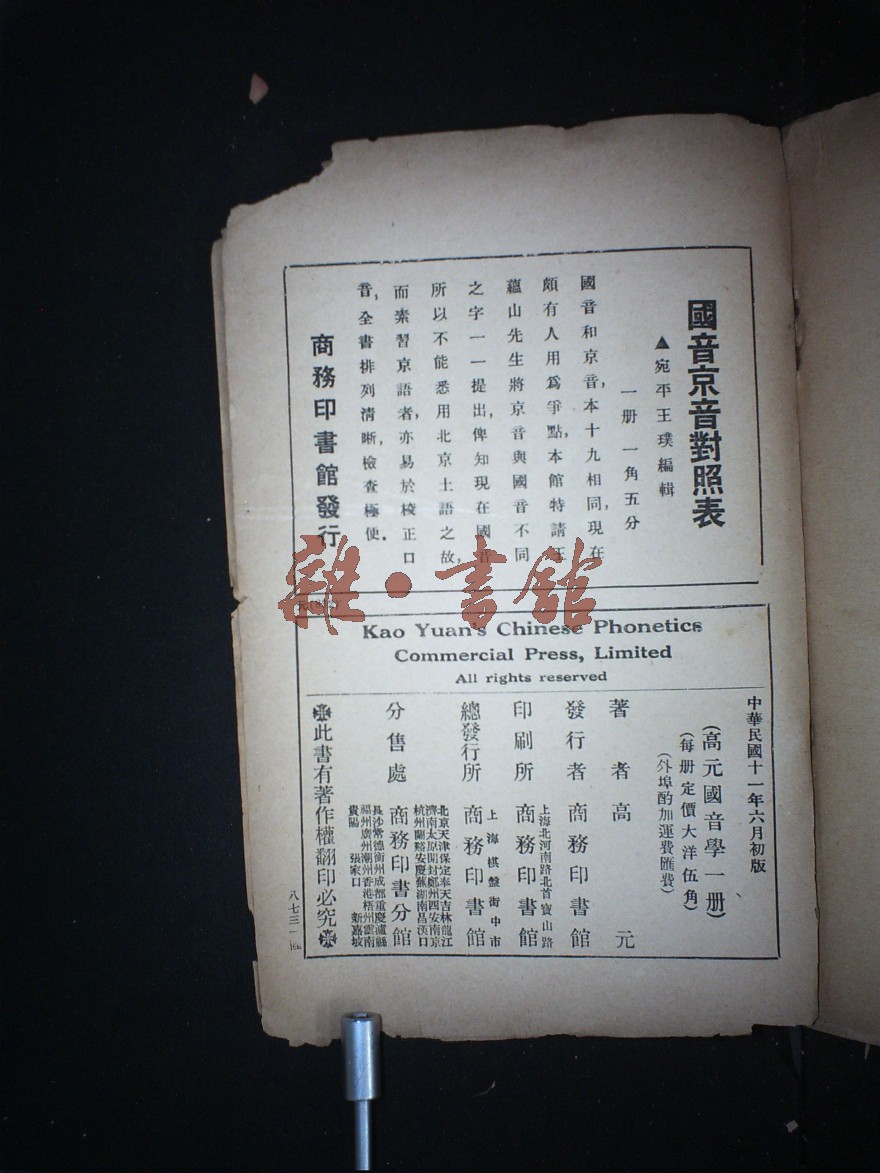 國音京音對照表
▲宛平王璞編輯
一册 一角五分
國音和京音,本十九相同,現在
頗有人用爲爭點,本館特請王
蘊山先生將京音與國音不同
之字一一提出,俾知現在國音
所以不能悉用北京土語之故,
而素習京語者,亦易於校正口
音,全書排列清晰,檢查極便.
商務印書館發行
雜·書館
Kao Yuan's Chinese Phonetics
Commercial Press, Limited
All rights reserved
中華民國十一年六月初版
(高元國音學一册)
(每册定價大洋伍角)
(外埠酌加運費匯費)
著者 高元
發行者 商務印書館
上海北河南路北首寶山路
印刷所 商務印書館
上海棋盤街中市
總發行所 商務印書館
北京天津保定奉天吉林龍江
濟南太原開封鄭州西安南京
杭州蘭谿安慶蕪湖南昌漢口
分售處 商務印書分館
長沙常德衡州成都重慶瀘縣
福州廣州潮州香港梧州雲南
貴陽 張家口 新嘉坡
此書有著作權翻印必究
八七三一